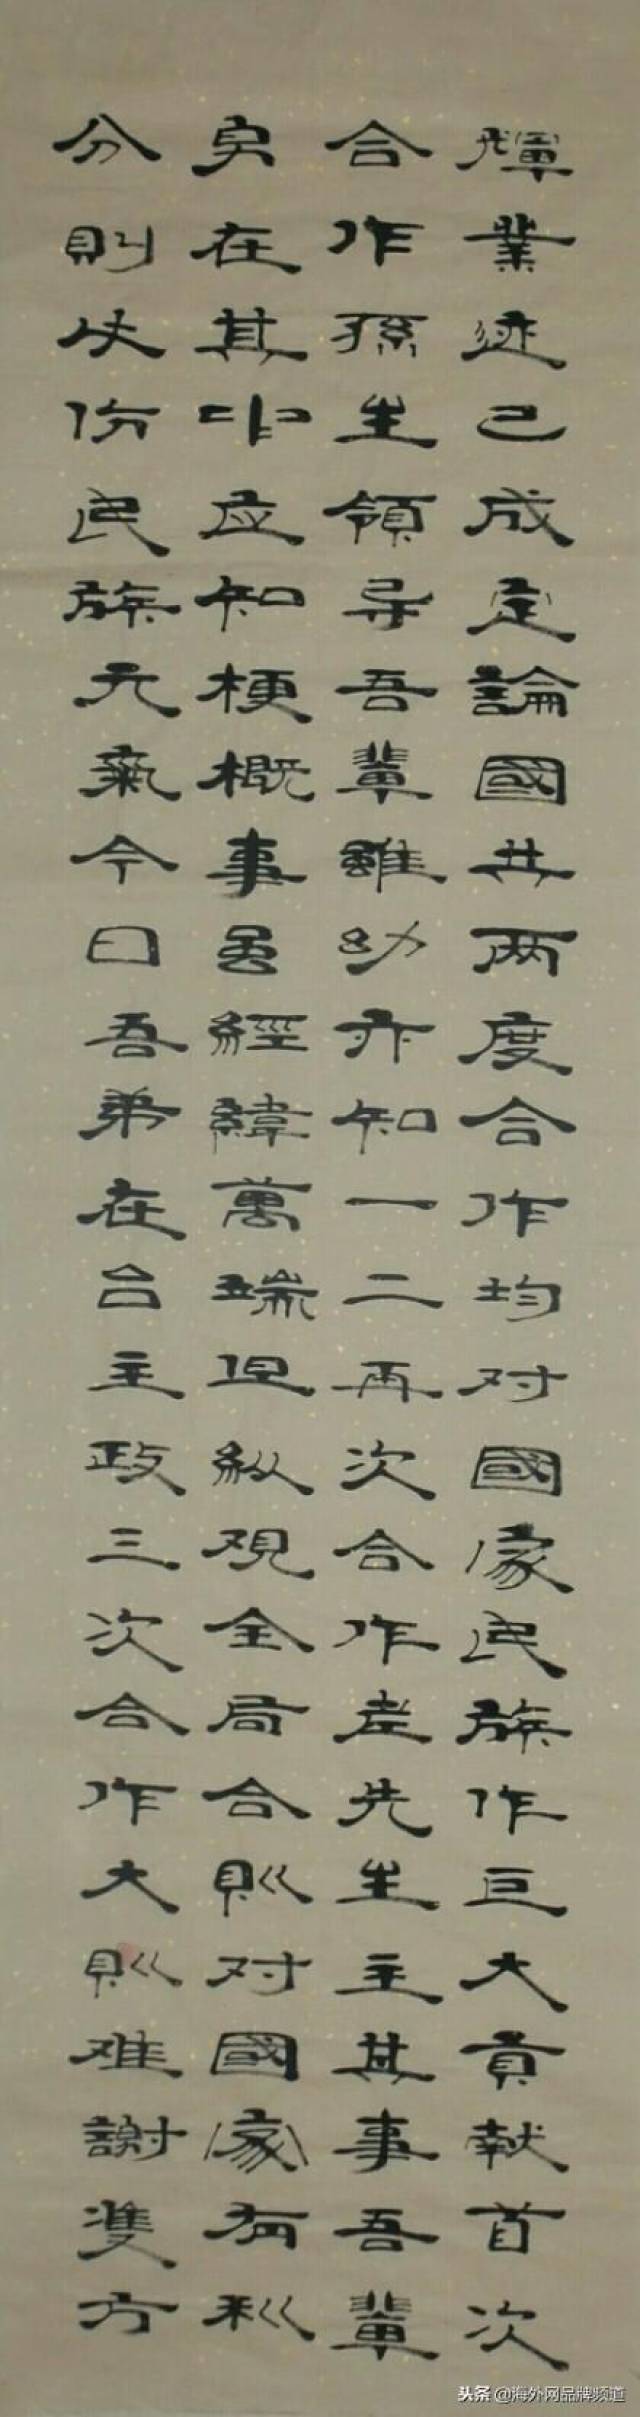 輝業迹已成定論國共两度合作均对國家民族作巨大貢献首次
合作孫生領导吾輩雖幼亦知一二再次合作老先生主其事吾輩
身在其中应知梗概事虽經緯萬端但纵观全局合則对國家有利
分則必伤民族元氣今日吾弟在台主政三次合作大則难謝雙方
头条 @海外网品牌频道